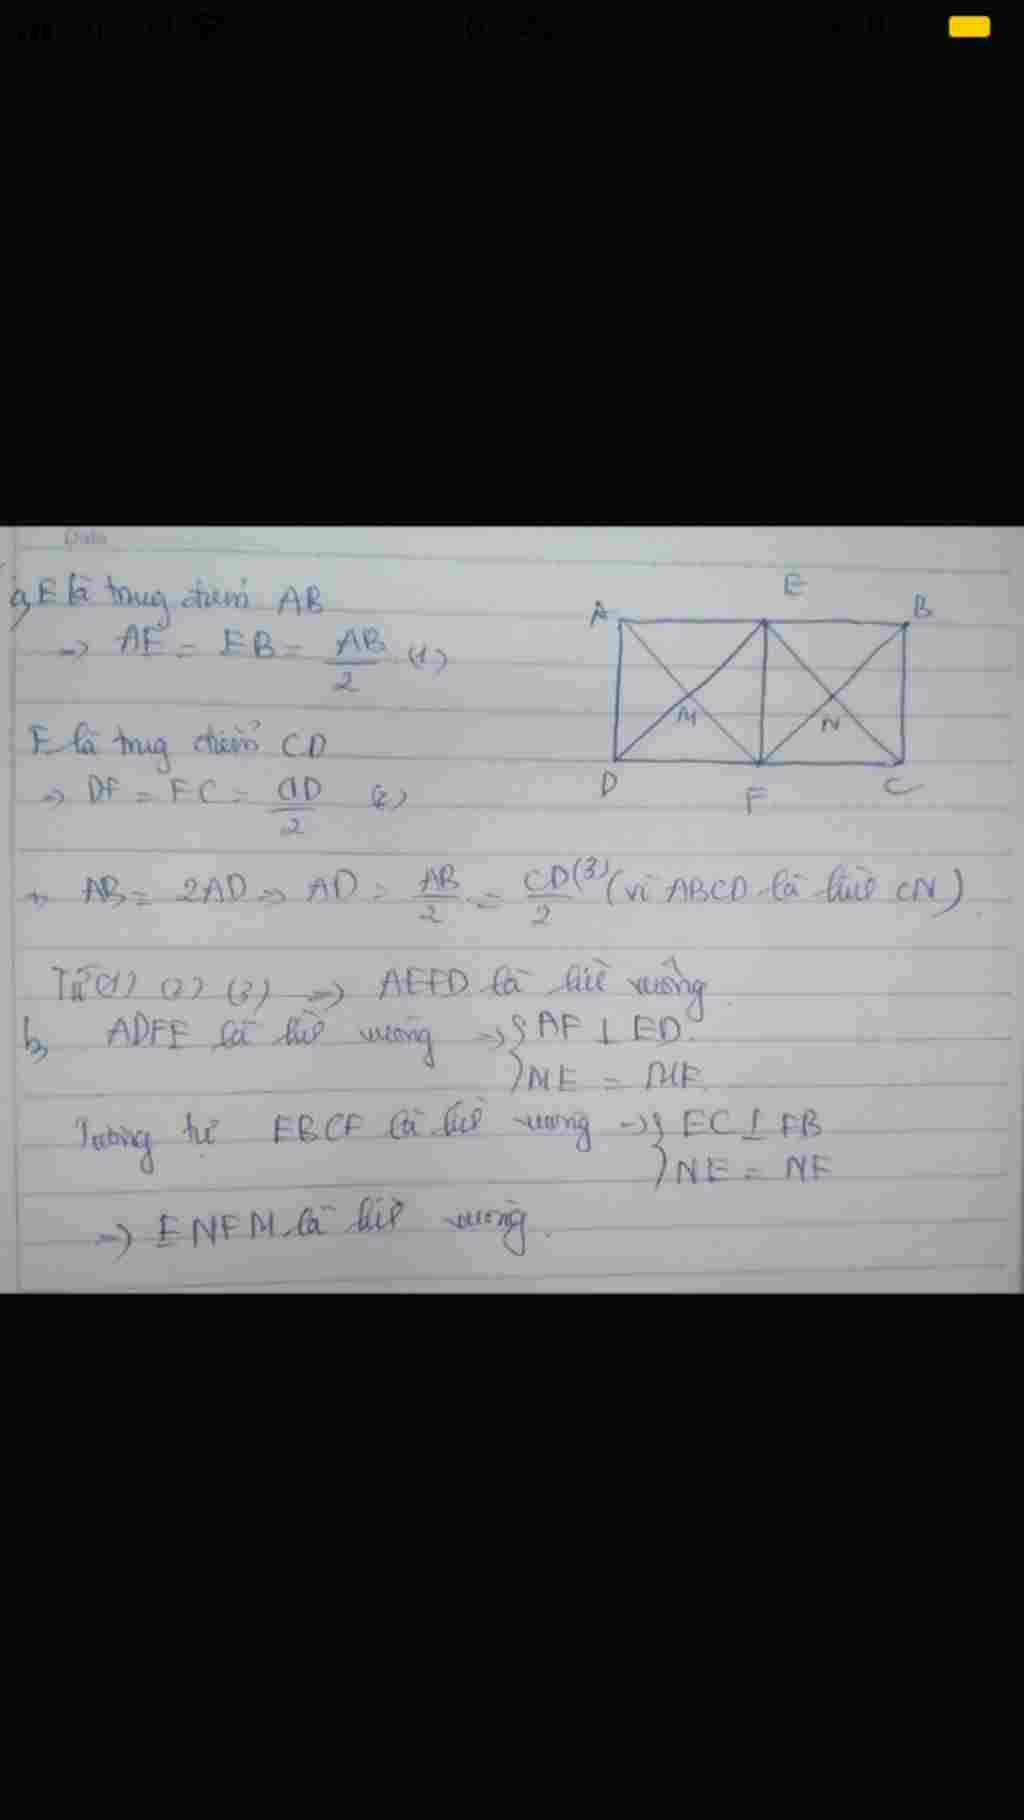 Date
a, E là trung điểm AB
→ AE = EB = AB/2 (1)
F là trung điểm CD
→ DF = FC = CD/2 (2)
+, AB = 2AD → AD = AB/2 = CD/2 (3) (vì ABCD là hình CN).
Từ (1) (2) (3) → AEFD là hình vuông.
b, ADFE là hình vuông → { AF ⊥ ED.
ME = MF.
Tương tự EBCF là hình vuông → { EC ⊥ FB
NE = NF
→ ENFM là hình vuông.
E
A B
M N
D F C